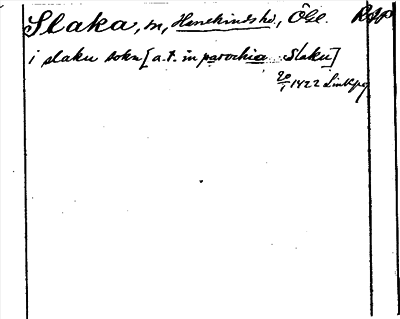 Slaka, sn, Hanekinds hd, Ögl. Rapp
i slaku sokn [a. t. in parochia Slaku]
20/1 1422 Linköping